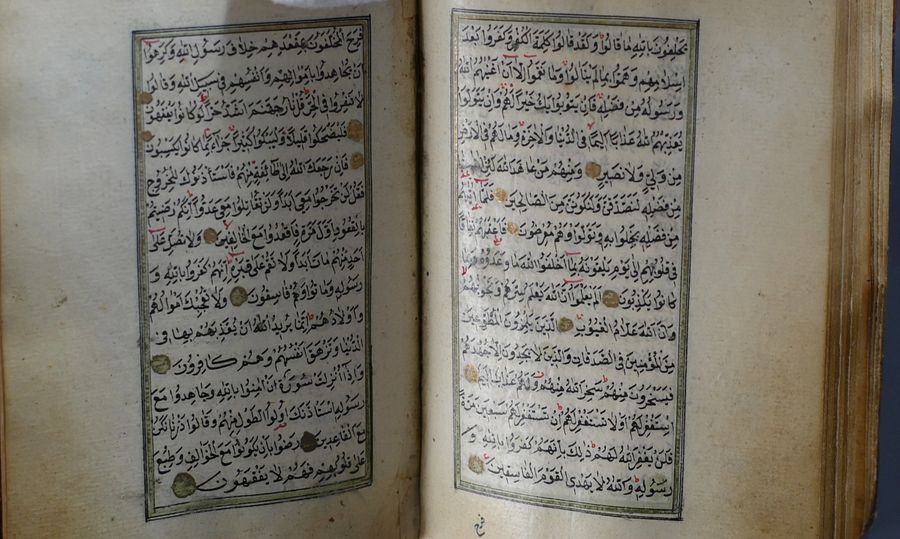 يَحْلِفُونَ بِاللّٰهِ مَا قَالُوا وَلَقَدْ قَالُوا كَلِمَةَ الْكُفْرِ وَكَفَرُوا بَعْدَ
اِسْلَامِهِمْ وَهَمُّوا بِمَا لَمْ يَنَالُوا وَمَا نَقَمُوا اِلَّا اَنْ اَغْنٰيهُمُ اللّٰهُ
وَرَسُولُهُ مِنْ فَضْلِهِ فَاِنْ يَتُوبُوا يَكُ خَيْرًا لَهُمْ وَاِنْ يَتَوَلَّوْا
يُعَذِّبْهُمُ اللّٰهُ عَذَابًا اَلِيمًا فِي الدُّنْيَا وَالْاٰخِرَةِ وَمَا لَهُمْ فِي الْاَرْضِ
مِنْ وَلِيٍّ وَلَا نَصِيرٍ وَمِنْهُمْ مَنْ عَاهَدَ اللّٰهَ لَئِنْ اٰتٰينَا
مِنْ فَضْلِهِ لَنَصَّدَّقَنَّ وَلَنَكُونَنَّ مِنَ الصَّالِحِينَ فَلَمَّا اٰتٰيهُمْ
مِنْ فَضْلِهِ بَخِلُوا بِهِ وَتَوَلَّوْا وَهُمْ مُعْرِضُونَ فَاَعْقَبَهُمْ نِفَاقًا
فِي قُلُوبِهِمْ اِلٰى يَوْمِ يَلْقَوْنَهُ بِمَا اَخْلَفُوا اللّٰهَ مَا وَعَدُوهُ وَبِمَا
كَانُوا يَكْذِبُونَ اَلَمْ يَعْلَمُوا اَنَّ اللّٰهَ يَعْلَمُ سِرَّهُمْ وَنَجْوٰيهُمْ
وَاَنَّ اللّٰهَ عَلَّامُ الْغُيُوبِ اَلَّذِينَ يَلْمِزُونَ الْمُطَّوِّعِينَ
مِنَ الْمُؤْمِنِينَ فِي الصَّدَقَاتِ وَالَّذِينَ لَا يَجِدُونَ اِلَّا جُهْدَهُمْ
فَيَسْخَرُونَ مِنْهُمْ سَخِرَ اللّٰهُ مِنْهُمْ وَلَهُمْ عَذَابٌ اَلِيمٌ
اِسْتَغْفِرْ لَهُمْ اَوْ لَا تَسْتَغْفِرْ لَهُمْ اِنْ تَسْتَغْفِرْ لَهُمْ سَبْعِينَ مَرَّةً
فَلَنْ يَغْفِرَ اللّٰهُ لَهُمْ ذٰلِكَ بِاَنَّهُمْ كَفَرُوا بِاللّٰهِ وَ
رَسُولِهِ وَاللّٰهُ لَا يَهْدِي الْقَوْمَ الْفَاسِقِينَ
فرح
فَرِحَ الْمُخَلَّفُونَ بِمَقْعَدِهِمْ خِلَافَ رَسُولِ اللّٰهِ وَكَرِهُوا
اَنْ يُجَاهِدُوا بِاَمْوَالِهِمْ وَاَنْفُسِهِمْ فِي سَبِيلِ اللّٰهِ وَقَالُوا
لَا تَنْفِرُوا فِي الْحَرِّ قُلْ نَارُ جَهَنَّمَ اَشَدُّ حَرًّا لَوْ كَانُوا يَفْقَهُونَ
فَلْيَضْحَكُوا قَلِيلًا وَلْيَبْكُوا كَثِيرًا جَزَاءً بِمَا كَانُوا يَكْسِبُونَ
فَاِنْ رَجَعَكَ اللّٰهُ اِلٰى طَائِفَةٍ مِنْهُمْ فَاسْتَاْذَنُوكَ لِلْخُرُوجِ
فَقُلْ لَنْ تَخْرُجُوا مَعِيَ اَبَدًا وَلَنْ تُقَاتِلُوا مَعِيَ عَدُوًّا اِنَّكُمْ رَضِيتُمْ
بِالْقُعُودِ اَوَّلَ مَرَّةٍ فَاقْعُدُوا مَعَ الْخَالِفِينَ وَلَا تُصَلِّ عَلٰى
اَحَدٍ مِنْهُمْ مَاتَ اَبَدًا وَلَا تَقُمْ عَلٰى قَبْرِهِ اِنَّهُمْ كَفَرُوا بِاللّٰهِ وَ
رَسُولِهِ وَمَاتُوا وَهُمْ فَاسِقُونَ وَلَا تُعْجِبْكَ اَمْوَالُهُمْ
وَاَوْلَادُهُمْ اِنَّمَا يُرِيدُ اللّٰهُ اَنْ يُعَذِّبَهُمْ بِهَا فِي
الدُّنْيَا وَتَزْهَقَ اَنْفُسُهُمْ وَهُمْ كَافِرُونَ
وَاِذَا اُنْزِلَتْ سُورَةٌ اَنْ اٰمِنُوا بِاللّٰهِ وَجَاهِدُوا مَعَ
رَسُولِهِ اسْتَاْذَنَكَ اُولُوا الطَّوْلِ مِنْهُمْ وَقَالُوا ذَرْنَا نَكُنْ
مَعَ الْقَاعِدِينَ رَضُوا بِاَنْ يَكُونُوا مَعَ الْخَوَالِفِ وَطُبِعَ
عَلٰى قُلُوبِهِمْ فَهُمْ لَا يَفْقَهُونَ